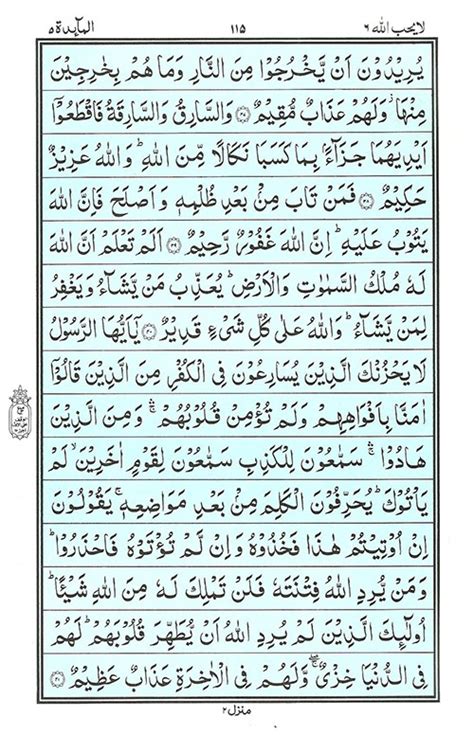 لا يحب الله ٦ ١١٥ المآئدة ٥
يُرِيْدُوْنَ اَنْ يَّخْرُجُوْا مِنَ النَّارِ وَمَا هُمْ بِخٰرِجِيْنَ
مِنْهَا ؗ وَلَهُمْ عَذَابٌ مُّقِيْمٌ ۝۳۷ وَالسَّارِقُ وَالسَّارِقَةُ فَاقْطَعُوْۤا
اَيْدِيَهُمَا جَزَآءًۢ بِمَا كَسَبَا نَكَالًا مِّنَ اللّٰهِ ؕ وَاللّٰهُ عَزِيْزٌ
حَكِيْمٌ ۝۳۸ فَمَنْ تَابَ مِنْۢ بَعْدِ ظُلْمِهٖ وَاَصْلَحَ فَاِنَّ اللّٰهَ
يَتُوْبُ عَلَيْهِ ؕ اِنَّ اللّٰهَ غَفُوْرٌ رَّحِيْمٌ ۝۳۹ اَلَمْ تَعْلَمْ اَنَّ اللّٰهَ
لَهٗ مُلْكُ السَّمٰوٰتِ وَالْاَرْضِ ؕ يُعَذِّبُ مَنْ يَّشَآءُ وَيَغْفِرُ
لِمَنْ يَّشَآءُ ؕ وَاللّٰهُ عَلٰى كُلِّ شَيْءٍ قَدِيْرٌ ۝۴۰ يٰۤاَيُّهَا الرَّسُوْلُ
لَا يَحْزُنْكَ الَّذِيْنَ يُسَارِعُوْنَ فِي الْكُفْرِ مِنَ الَّذِيْنَ قَالُوْۤا
اٰمَنَّا بِاَفْوَاهِهِمْ وَلَمْ تُؤْمِنْ قُلُوْبُهُمْ ۛۚ وَمِنَ الَّذِيْنَ
هَادُوْا ۛۚ سَمّٰعُوْنَ لِلْكَذِبِ سَمّٰعُوْنَ لِقَوْمٍ اٰخَرِيْنَ ۙ لَمْ
يَاْتُوْكَ ؕ يُحَرِّفُوْنَ الْكَلِمَ مِنْۢ بَعْدِ مَوَاضِعِهٖ ۚ يَقُوْلُوْنَ
اِنْ اُوْتِيْتُمْ هٰذَا فَخُذُوْهُ وَاِنْ لَّمْ تُؤْتَوْهُ فَاحْذَرُوْا ؕ
وَمَنْ يُّرِدِ اللّٰهُ فِتْنَتَهٗ فَلَنْ تَمْلِكَ لَهٗ مِنَ اللّٰهِ شَيْـًٔا ؕ
اُولٰٓئِكَ الَّذِيْنَ لَمْ يُرِدِ اللّٰهُ اَنْ يُّطَهِّرَ قُلُوْبَهُمْ ؕ لَهُمْ
فِي الدُّنْيَا خِزْيٌ ۖۚ وَّلَهُمْ فِي الْاٰخِرَةِ عَذَابٌ عَظِيْمٌ ۝۴۱
منزل ٢